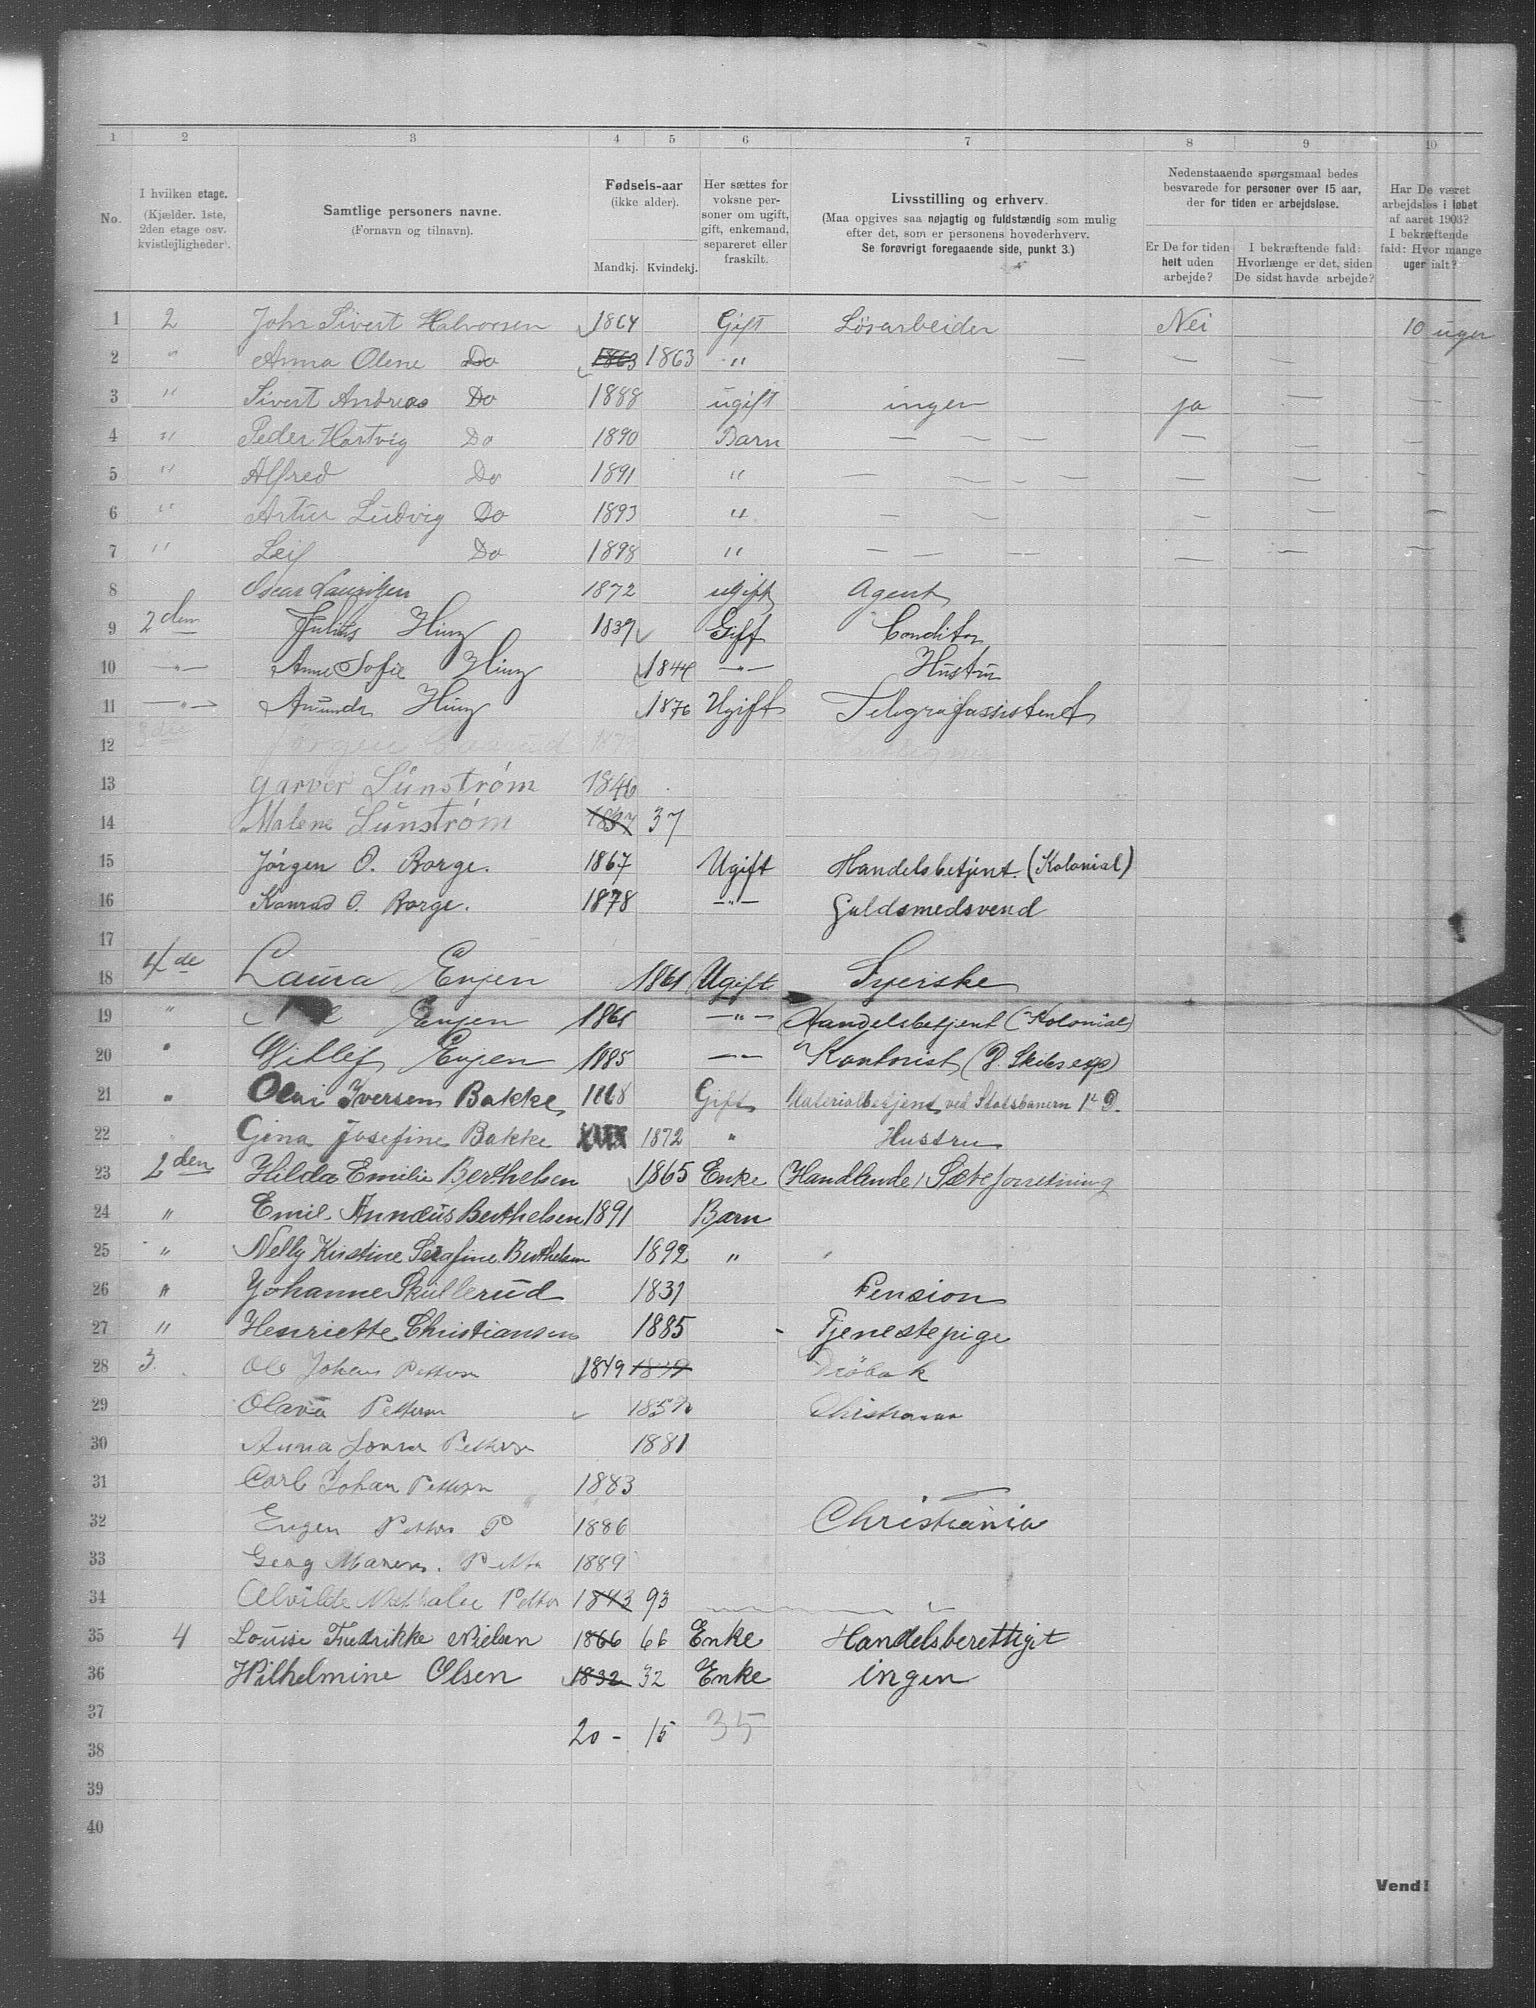 1 2 3 4 5 6 7 8 9 10
No.
I hvilken etage.
(Kjælder. 1ste,
2den etage osv.
kvistlejligheder).
Samtlige personers navne.
(Fornavn og tilnavn).
Fødsels-aar
(ikke alder).
Mandkj. Kvindekj.
Her sættes for
voksne per-
soner om ugift,
gift, enkemand,
separeret eller
fraskilt.
Livsstilling og erhverv.
(Maa opgives saa nøjagtig og fuldstændig som mulig
efter det, som er personens hovederhverv.
Se forøvrigt foregaaende side, punkt 3.)
Nedenstaaende spørgsmaal bedes
besvarede for personer over 15 aar,
der for tiden er arbejdsløse.
Er De for tiden
helt uden
arbejde?
I bekræftende fald:
Hvorlænge er det, siden
De sidst havde arbejde?
Har De været
arbejdsløs i løbet
af aaret 1903?
I bekræftende
fald: Hvor mange
uger ialt?
1 2 John Sivert Halvorsen 1864 Gift Løsarbeider Nei 10 uger
2 " Anna Olene Do 1863 1863 " — — —
3 " Sivert Andreas Do 1888 ugift ingen ja — —
4 " Peder Hartvig Do 1890 Barn — — — — — — —
5 " Alfred Do 1891 " — — — — — — —
6 " Artur Ludvig Do 1893 " — — — — — —
7 " Leif Do 1898 " — — — — — —
8 Oscar Lauritzen 1872 ugift Agent
9 2den Julius Hinz 1839 Gift Conditor
10 —"— Anne Sofie Hinz 1844 —"— Hustru
11 —"— Amunda Hinz 1876 Ugift Telegrafassistent
12 Jørgen
13 Garver Lunstrøm 1846
14 Malene Lunstrøm 1837 37
15 Jørgen O. Borge. 1867 Ugift Handelsbetjent. (Kolonial)
16 Konrad O. Borge. 1878 —"— Guldsmedsvend
17
18 4de Laura Engen 1861 Ugift Syerske
19 " Engen 1865 —"— Handelsbetjent (Kolonial)
20 " Engen 1885 —"— Kontorist (D. Skibsexp)
21 " Olai Iversen Bakke 1868 Gift Materialbetjent ved Statsbanern 1ste D.
22 Gina Josefine Bakke 1872 " Hustru
23 2den Hilda Emilie Berthelsen 1865 Enke (Handlende) Sæbeforretning
24 " Emil Annæus Berthelsen 1891 Barn
25 " Nelly Kirstine Serafine Berthelsen 1892 "
26 " Johanne Skullerud 1831 Pension
27 " Henriette Christiansen 1885 - Tjenestepige
28 3. Ole Johan Petterse 1849 1849 Drøbak
29 Olava Pettersen 1857 Christiania
30 Anna Petterse 1881
31 Carl Johan Pettersn 1883
32 Eugen Petter P 1886 Christiania
33 Georg Pette 1889
34 Alvilde Petter 1843 93
35 4 Louise Fredrikke Nielsen 1866 66 Enke Handelsberettiget
36 Wilhelmine Olsen 1832 32 Enke ingen
37
20 - 15 35
38
39
40
Vend!